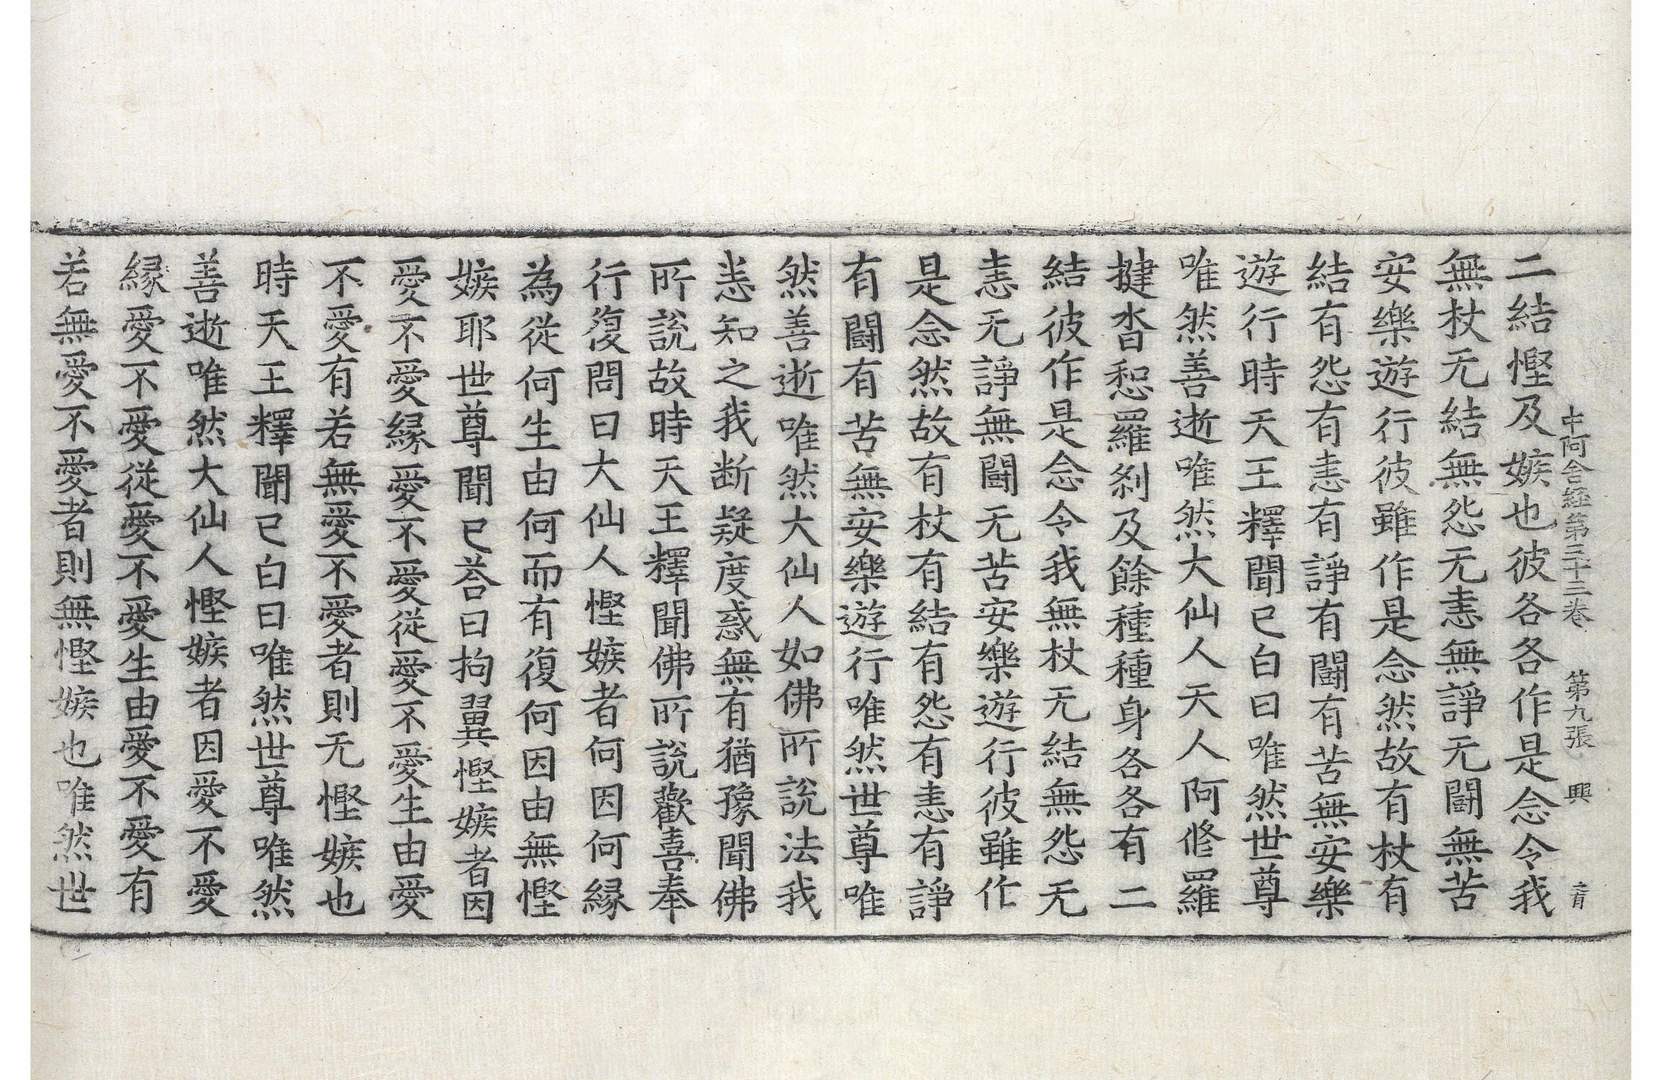 中阿含經第三十三卷 第九張 興
二結慳及嫉也彼各各作是念令我
無杖无結無怨无恚無諍无鬪無苦
安樂遊行彼雖作是念然故有杖有
結有怨有恚有諍有鬪有苦無安樂
遊行時天王釋聞已白曰唯然世尊
唯然善逝唯然大仙人天人阿修羅
揵沓惒羅剎及餘種種身各各有二
結彼作是念令我無杖无結無怨无
恚无諍無鬪无苦安樂遊行彼雖作
是念然故有杖有結有怨有恚有諍
有鬪有苦無安樂遊行唯然世尊唯
然善逝唯然大仙人如佛所說法我
悉知之我断疑度惑無有猶豫聞佛
所說故時天王釋聞佛所說歡喜奉
行復問曰大仙人慳嫉者何因何縁
為從何生由何而有復何因由無慳
嫉耶世尊聞已荅曰拘翼慳嫉者因
愛不愛縁愛不愛從愛不愛生由愛
不愛有若無愛不愛者則无慳嫉也
時天王釋聞已白曰唯然世尊唯然
善逝唯然大仙人慳嫉者因愛不愛
縁愛不愛從愛不愛生由愛不愛有
若無愛不愛者則無慳嫉也唯然世